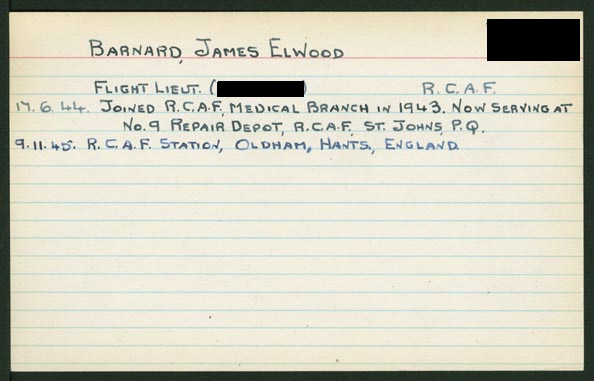 BARNARD, JAMES ELWOOD
FLIGHT LIEUT. ( ) R.C.A.F.
17.6.44. JOINED R.C.A.F. MEDICAL BRANCH IN 1943. NOW SERVING AT
No. 9 REPAIR DEPOT, R.C.A.F. ST. JOHNS, P.Q.
9.11.45. R.C.A.F. STATION, OLDHAM, HANTS, ENGLAND.